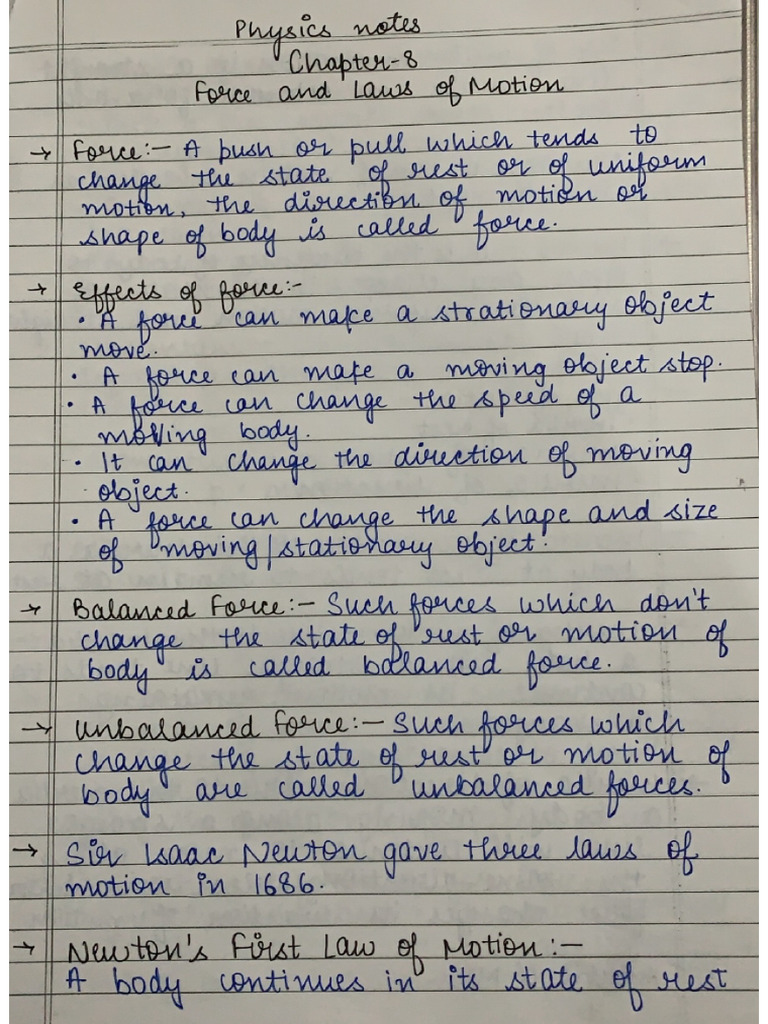 Physics notes
Chapter-8
Force and Laws of Motion
→ Force:- A push or pull which tends to
change the state of rest or of uniform
motion, the direction of motion or
shape of body is called force.
→ Effects of force:-
• A force can make a strationary object
move.
• A force can make a moving object stop.
• A force can change the speed of a
moving body.
• It can change the direction of moving
object.
• A force can change the shape and size
of moving/stationary object.
→ Balanced Force:- Such forces which don't
change the state of rest or motion of
body is called balanced force.
→ Unbalanced Force:- Such forces which
change the state of rest or motion of
body are called unbalanced forces.
→ Sir Isaac Newton gave three laws of
motion in 1686.
→ Newton's First Law of Motion:-
A body continues in its state of rest